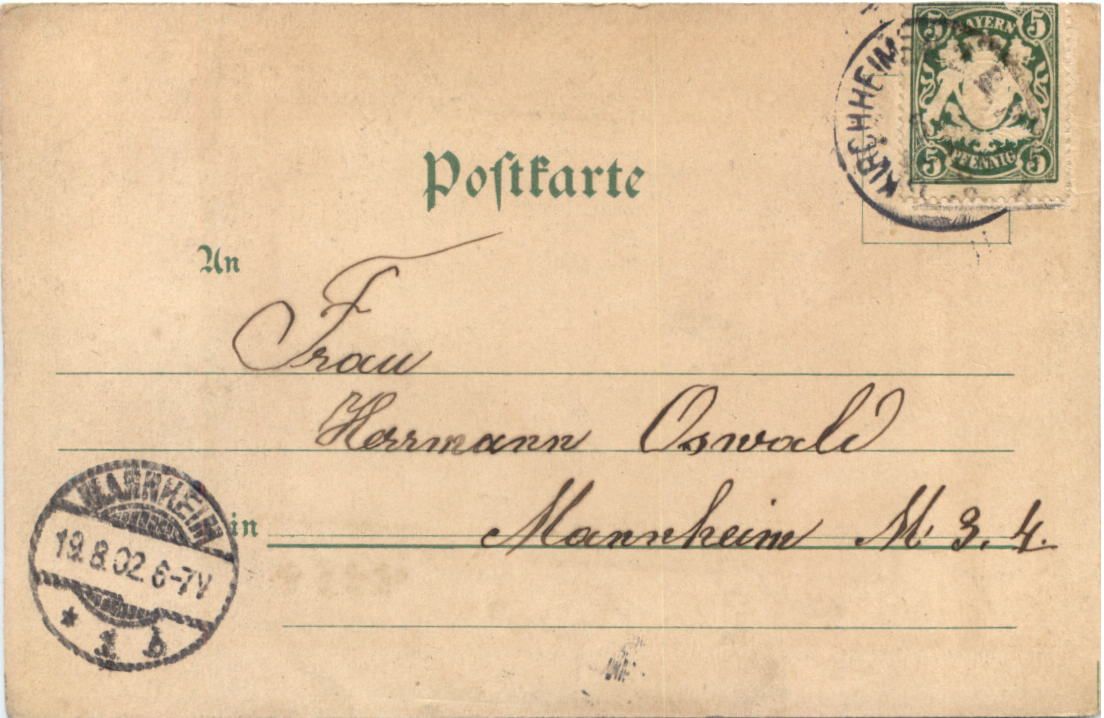 5 BAYERN 5
5 PFENNIG 5
KIRCHHEIM
Poſtkarte
An
Frau
Herrmann Oswald
in Mannheim M. 3. 4.
MANNHEIM
19.8.02. 6-7V
* 1 b